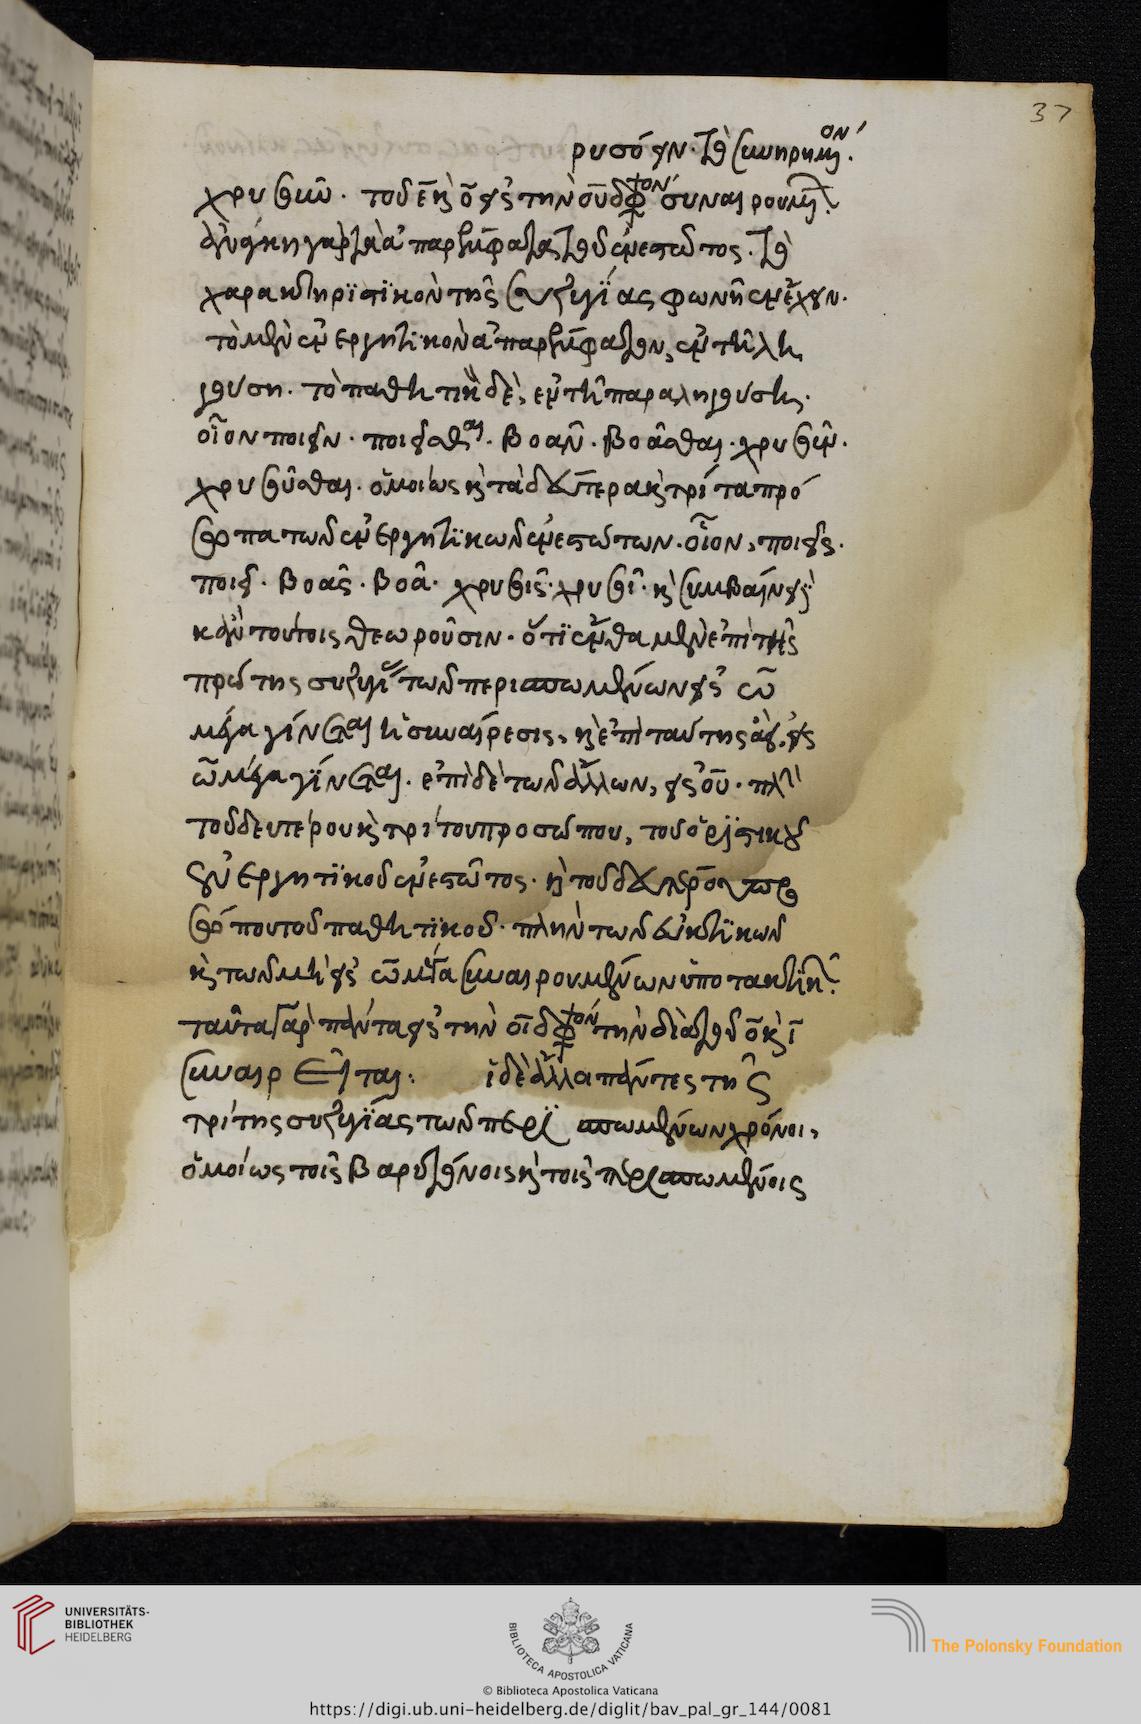 37
ρυσόειν. τὸ συνηρημένον.
χρυσοῦν. τοῦ ε καὶ ο εἰς τὴν οῦ δίφθογγον συναιρουμένων.
ἀνάγκη γὰρ τὰ ἀπαρέμφατα τοῦ ἐνεστῶτος. τὸ
χαρακτηριστικὸν τῆς συζυγίας φωνῆεν ἔχειν.
τὸ μὲν ἐνεργητικὸν ἀπαρέμφατον, ἐν τῆ λη
γούση. τὸ παθητικὸν δὲ, ἐν τῆ παραληγούση.
οἷον ποιεῖν. ποιεῖσθαι. βοᾶν. βοᾶσθαι. χρυσοῦν.
χρυσοῦσθαι. ὁμοίως καὶ τὰ δεύτερα καὶ τρίτα πρό
σωπα τῶν ἐνεργητικῶν ἐνεστώτων. οἷον, ποιεῖς.
ποιεῖ. βοᾶς. βοᾶ. χρυσοῖς. χρυσοῖ. καὶ συμβαίνει
κἀν τούτοις θεωροῦσιν. ὅτι ἔνθα μὲν ἐπὶ τῆς
πρώτης συζυγίας τῶν περισπωμένων εἰς ῶ
μέγα γίνεται ἡ συναίρεσις, καὶ ἐπὶ ταύτης ἀεὶ εἰς
ῶ μέγα γίνεται. ἐπὶ δὲ τῶν ἄλλων, εἰς οῦ. πλὴν
τοῦ δευτέρου καὶ τρίτου προσώπου, τοῦ ὁριστικοῦ
ἐνεργητικοῦ ἐνεστῶτος. καὶ τοῦ δευτέρου προ
σώπου τοῦ παθητικοῦ. πλὴν τῶν εὐκτικῶν
καὶ τῶν μὴ εἰς ῶ μέγα συναιρουμένων ὑποτακτικῶν.
ταῦτα γὰρ πάντα εἰς τὴν οῖ δίφθογγον τὴν διὰ τοῦ ο καὶ ι
συναιρεῖται: ἰδὲ ἀλλὰ πάντες τῆς
τρίτης συζυγίας τῶν περισπωμένων χρόνοι,
ὁμοίως τοῖς βαρυτόνοις καὶ τοῖς περισπωμένοις
UNIVERSITÄTS-
BIBLIOTHEK
HEIDELBERG
BIBLIOTECA APOSTOLICA VATICANA
The Polonsky Foundation
© Biblioteca Apostolica Vaticana
https://digi.ub.uni-heidelberg.de/diglit/bav_pal_gr_144/0081